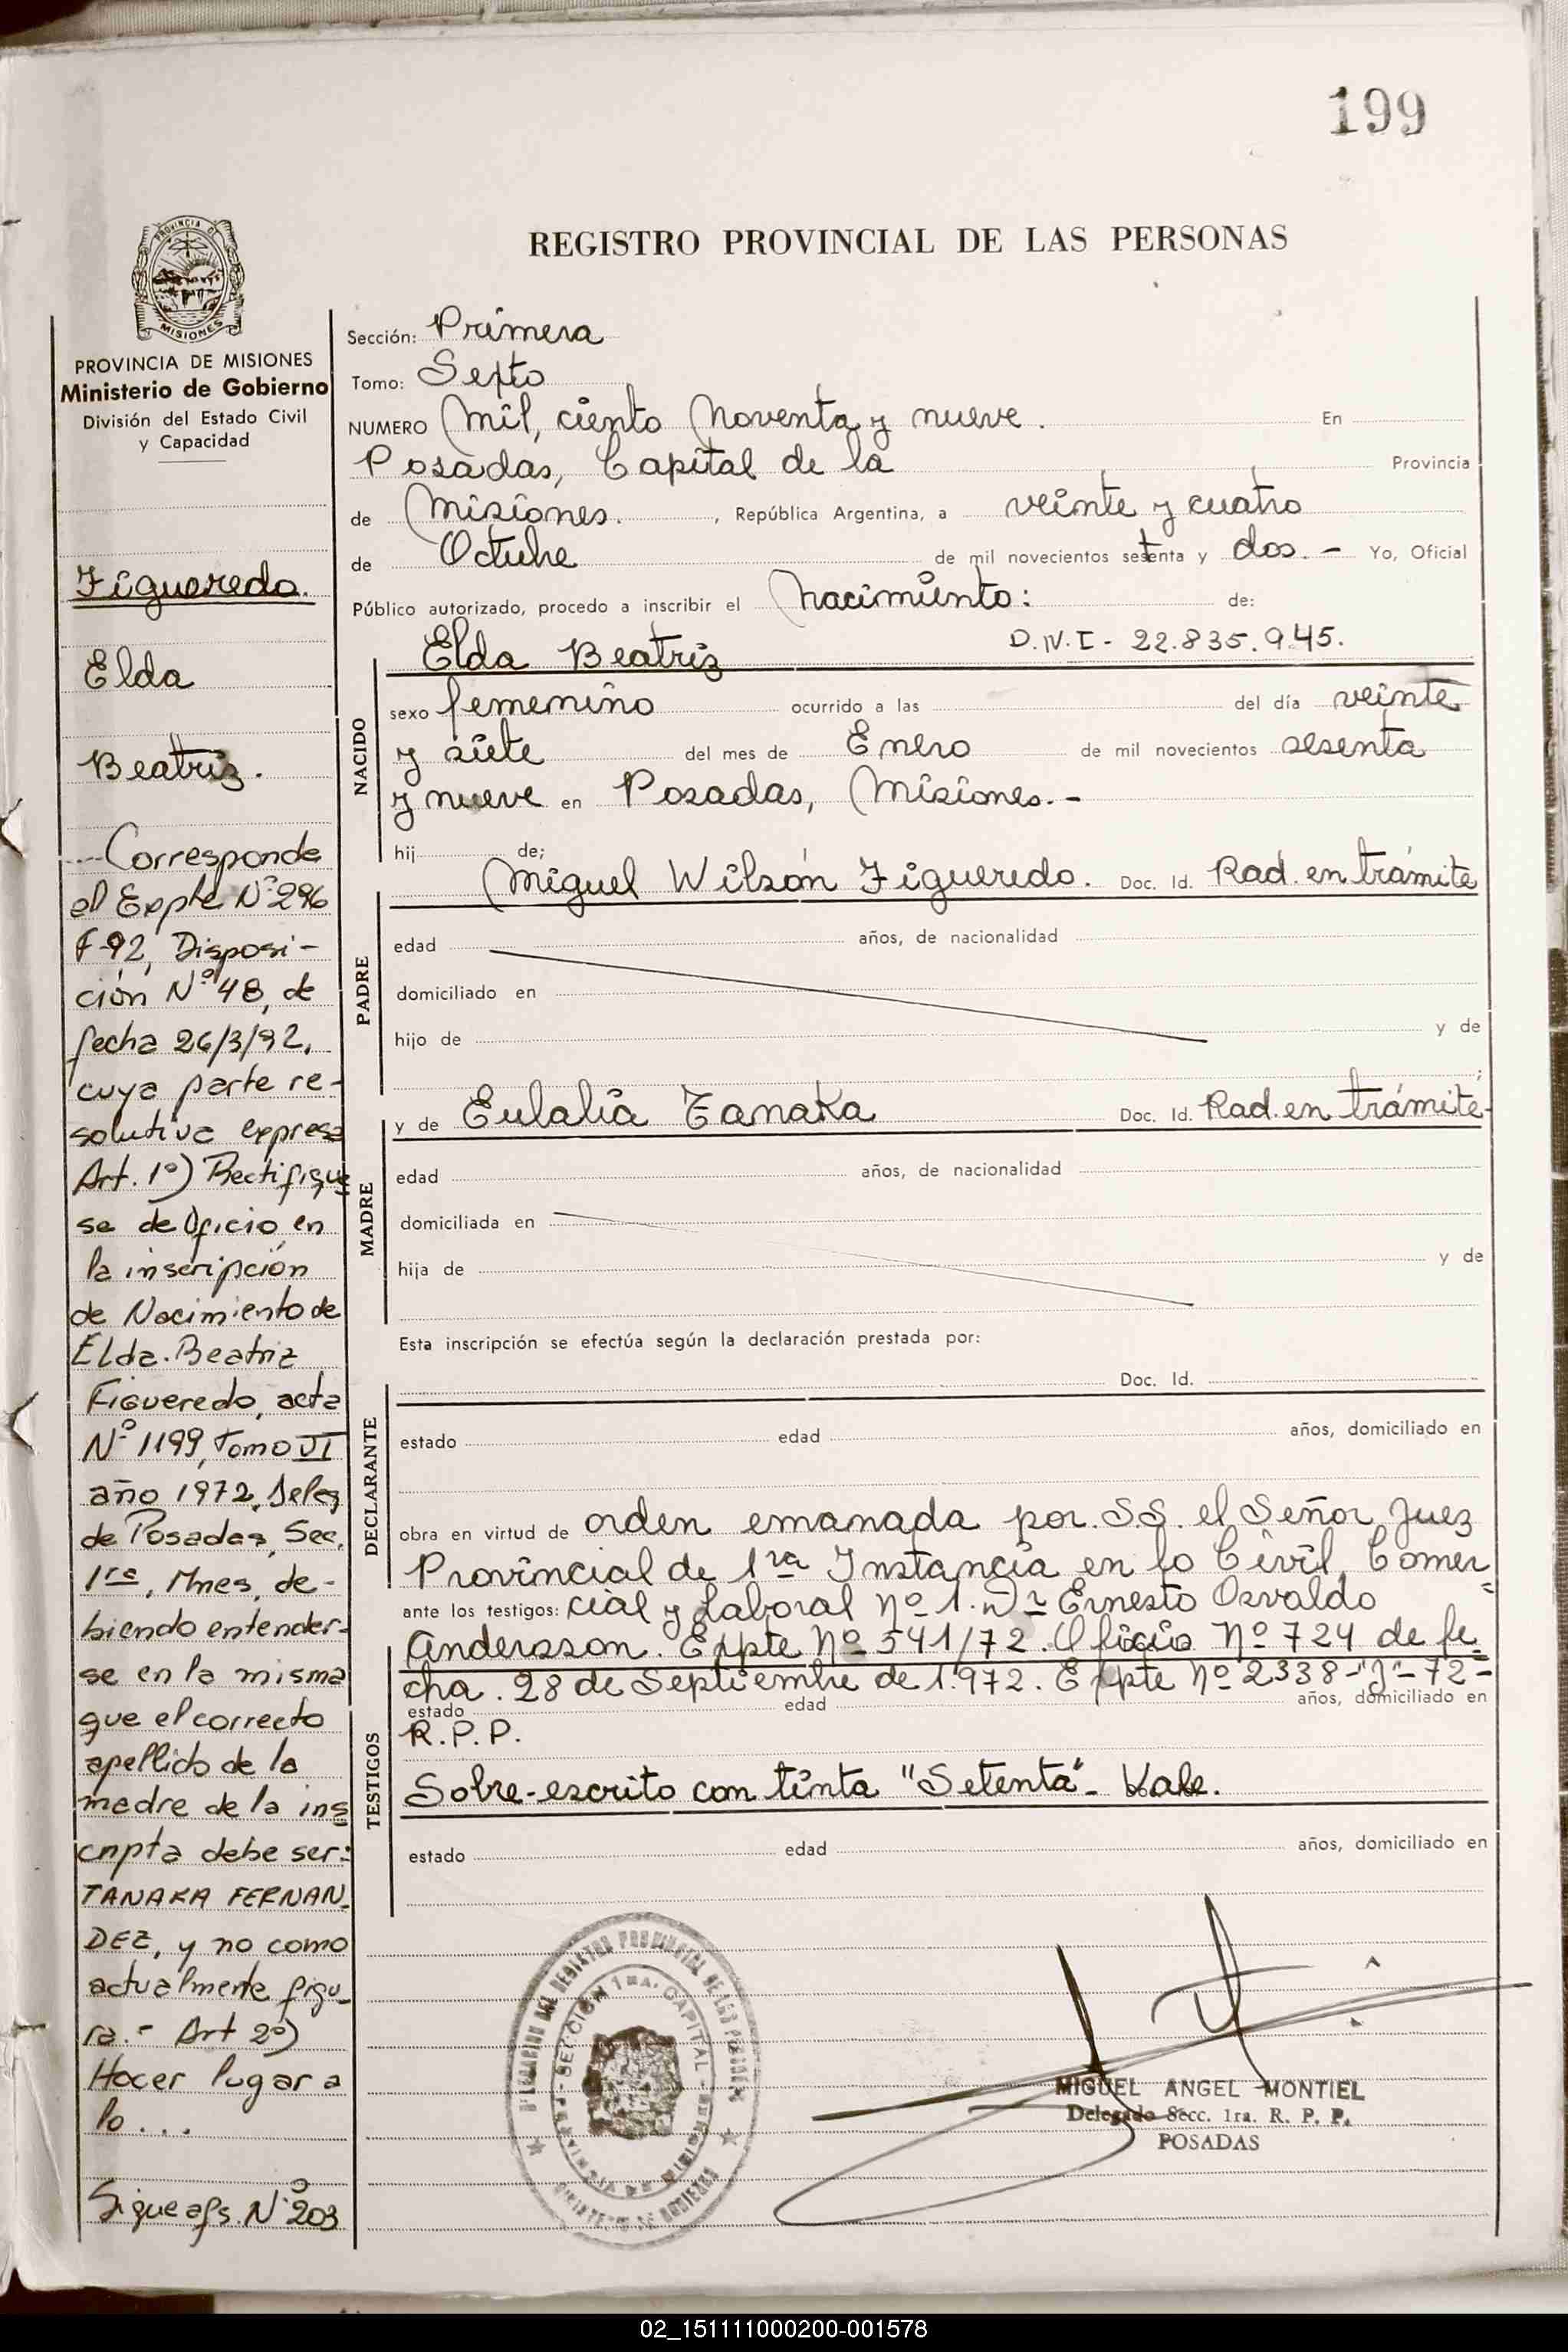 199
REGISTRO PROVINCIAL DE LAS PERSONAS
PROVINCIA DE MISIONES
Ministerio de Gobierno
División del Estado Civil
y Capacidad
Figueredo.
Elda
Beatriz.
---Corresponde
el Expte Nº 296
F-92, Disposi-
ción Nº 48, de
fecha 26/3/92,
cuya parte re-
solutiva expresa
Art. 1º) Rectifíque
se de Oficio en
la inscripción
de Nacimiento de
Elda Beatriz
Figueredo, acta
Nº 1199, Tomo VI
año 1972, Deleg
de Posadas, Sec.
1ra, Mnes, de-
biendo entender-
se en la misma
que el correcto
apellido de la
madre de la ins
cripta debe ser:
TANAKA FERNAN-
DEZ, y no como
actualmente figu-
ra.- Art 2º)
Hacer lugar a
lo...
Sigue a fs. Nº 203
Sección: Primera
Tomo: Sexto
NUMERO Mil, ciento Noventa y nueve. En
Posadas, Capital de la Provincia
de Misiones. , República Argentina, a veinte y cuatro
de Octubre de mil novecientos setenta y dos. - Yo, Oficial
Público autorizado, procedo a inscribir el Nacimiento: de:
Elda Beatriz D.N.I - 22.835.945.
NACIDO
sexo femenino ocurrido a las del día veinte
y siete del mes de Enero de mil novecientos sesenta
y nueve en Posadas, Misiones.-
hij de;
PADRE
Miguel Wilson Figueredo. Doc. Id. Rad. en trámite
edad años, de nacionalidad
domiciliado en
hijo de y de
;
MADRE
y de Eulalia Tanaka Doc. Id. Rad. en trámite-
edad años, de nacionalidad
domiciliada en
hija de y de
Esta inscripción se efectúa según la declaración prestada por:
DECLARANTE
Doc. Id.
estado edad años, domiciliado en
obra en virtud de orden emanada por. S.S. el Señor Juez
Provincial de 1ra Instancia en lo Civil, Comer
ante los testigos: cial y Laboral Nº 1. Dr Ernesto Osvaldo
Andersson. Expte Nº 541/72. Oficio Nº 724 de fe
cha. 28 de Septiembre de 1.972. Expte Nº 2338-"J"-72-
estado edad años, domiciliado en
R.P.P.
TESTIGOS
Sobre-escrito con tinta "Setenta"- Vale.
estado edad años, domiciliado en
SECCIÓN 1RA. CAPITAL
MIGUEL ANGEL MONTIEL
Delegado Secc. 1ra. R. P. P.
POSADAS
02_151111000200-001578